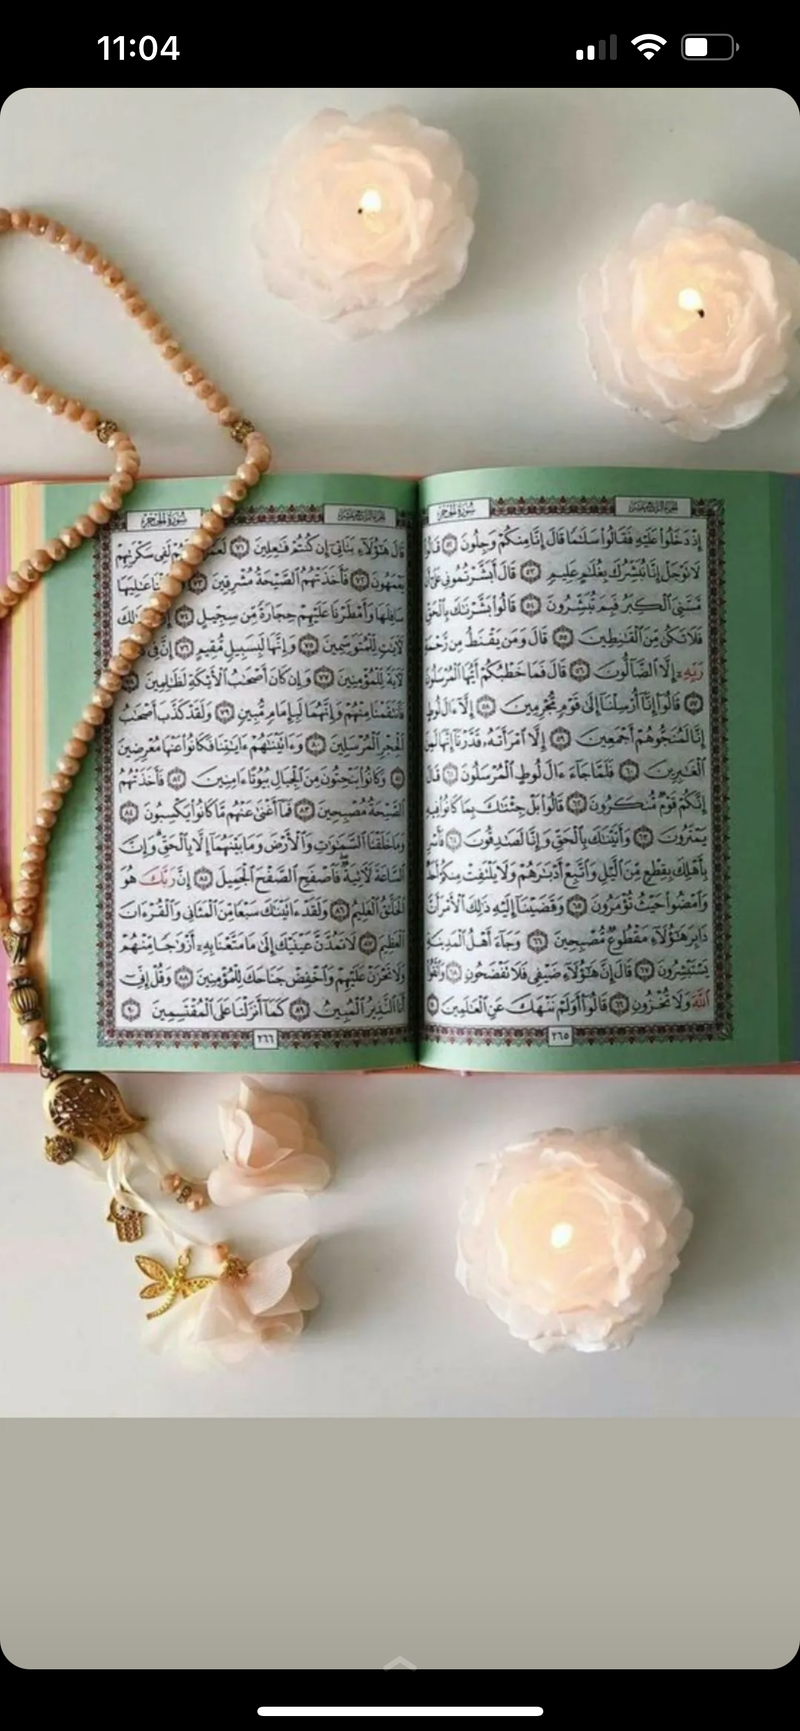 11:04
سُورَةُ الحِجْرِ
الجُزءُ الرَّابِعَ عَشَرَ
إِذْ دَخَلُوا۟ عَلَيْهِ فَقَالُوا۟ سَلَٰمًا قَالَ إِنَّا مِنكُمْ وَجِلُونَ ٥٢ قَالُوا۟
لَا تَوْجَلْ إِنَّا نُبَشِّرُكَ بِغُلَٰمٍ عَلِيمٍ ٥٣ قَالَ أَبَشَّرْتُمُونِى عَلَىٰٓ أَن
مَّسَّنِىَ ٱلْكِبَرُ فَبِمَ تُبَشِّرُونَ ٥٤ قَالُوا۟ بَشَّرْنَٰكَ بِٱلْحَقِّ
فَلَا تَكُن مِّنَ ٱلْقَٰنِطِينَ ٥٥ قَالَ وَمَن يَقْنَطُ مِن رَّحْمَةِ
رَبِّهِۦٓ إِلَّا ٱلضَّآلُّونَ ٥٦ قَالَ فَمَا خَطْبُكُمْ أَيُّهَا ٱلْمُرْسَلُونَ
٥٧ قَالُوٓا۟ إِنَّآ أُرْسِلْنَآ إِلَىٰ قَوْمٍ مُّجْرِمِينَ ٥٨ إِلَّآ ءَالَ لُوطٍ
إِنَّا لَمُنَجُّوهُمْ أَجْمَعِينَ ٥٩ إِلَّا ٱمْرَأَتَهُۥ قَدَّرْنَآ إِنَّهَا لَمِنَ
ٱلْغَٰبِرِينَ ٦٠ فَلَمَّا جَآءَ ءَالَ لُوطٍ ٱلْمُرْسَلُونَ ٦١ قَالَ
إِنَّكُمْ قَوْمٌ مُّنكَرُونَ ٦٢ قَالُوا۟ بَلْ جِئْنَٰكَ بِمَا كَانُوا۟ فِيهِ
يَمْتَرُونَ ٦٣ وَأَتَيْنَٰكَ بِٱلْحَقِّ وَإِنَّا لَصَٰدِقُونَ ٦٤ فَأَسْرِ
بِأَهْلِكَ بِقِطْعٍ مِّنَ ٱلَّيْلِ وَٱتَّبِعْ أَدْبَٰرَهُمْ وَلَا يَلْتَفِتْ مِنكُمْ أَحَدٌ
وَٱمْضُوا۟ حَيْثُ تُؤْمَرُونَ ٦٥ وَقَضَيْنَآ إِلَيْهِ ذَٰلِكَ ٱلْأَمْرَ أَنَّ
دَابِرَ هَٰٓؤُلَآءِ مَقْطُوعٌ مُّصْبِحِينَ ٦٦ وَجَآءَ أَهْلُ ٱلْمَدِينَةِ
يَسْتَبْشِرُونَ ٦٧ قَالَ إِنَّ هَٰٓؤُلَآءِ ضَيْفِى فَلَا تَفْضَحُونِ ٦٨ وَٱتَّقُوا۟
ٱللَّهَ وَلَا تُخْزُونِ ٦٩ قَالُوٓا۟ أَوَلَمْ نَنْهَكَ عَنِ ٱلْعَٰلَمِينَ ٧٠
٢٦٥
الجُزءُ الرَّابِعَ عَشَرَ
سُورَةُ الحِجْرِ
قَالَ هَٰٓؤُلَآءِ بَنَاتِىٓ إِن كُنتُمْ فَٰعِلِينَ ٧١ لَفِى سَكْرَتِهِمْ
يَعْمَهُونَ ٧٢ فَأَخَذَتْهُمُ ٱلصَّيْحَةُ مُشْرِقِينَ ٧٣ عَٰلِيَهَا
سَافِلَهَا وَأَمْطَرْنَا عَلَيْهِمْ حِجَارَةً مِّن سِجِّيلٍ ٧٤ ذَٰلِكَ
لَءَايَٰتٍ لِّلْمُتَوَسِّمِينَ ٧٥ وَإِنَّهَا لَبِسَبِيلٍ مُّقِيمٍ ٧٦ إِنَّ فِى
لَءَايَةً لِّلْمُؤْمِنِينَ ٧٧ وَإِن كَانَ أَصْحَٰبُ ٱلْأَيْكَةِ لَظَٰلِمِينَ
فَٱنتَقَمْنَا مِنْهُمْ وَإِنَّهُمَا لَبِإِمَامٍ مُّبِينٍ ٧٩ وَلَقَدْ كَذَّبَ أَصْحَٰبُ
ٱلْحِجْرِ ٱلْمُرْسَلِينَ ٨٠ وَءَاتَيْنَٰهُمْ ءَايَٰتِنَا فَكَانُوا۟ عَنْهَا مُعْرِضِينَ
٨١ وَكَانُوا۟ يَنْحِتُونَ مِنَ ٱلْجِبَالِ بُيُوتًا ءَامِنِينَ ٨٢ فَأَخَذَتْهُمُ
ٱلصَّيْحَةُ مُصْبِحِينَ ٨٣ فَمَآ أَغْنَىٰ عَنْهُم مَّا كَانُوا۟ يَكْسِبُونَ ٨٤
وَمَا خَلَقْنَا ٱلسَّمَٰوَٰتِ وَٱلْأَرْضَ وَمَا بَيْنَهُمَآ إِلَّا بِٱلْحَقِّ وَإِنَّ
ٱلسَّاعَةَ لَءَاتِيَةٌ فَٱصْفَحِ ٱلصَّفْحَ ٱلْجَمِيلَ ٨٥ إِنَّ رَبَّكَ هُوَ
ٱلْخَلَّٰقُ ٱلْعَلِيمُ ٨٦ وَلَقَدْ ءَاتَيْنَٰكَ سَبْعًا مِّنَ ٱلْمَثَانِى وَٱلْقُرْءَانَ
ٱلْعَظِيمَ ٨٧ لَا تَمُدَّنَّ عَيْنَيْكَ إِلَىٰ مَا مَتَّعْنَا بِهِۦٓ أَزْوَٰجًا مِّنْهُمْ
وَلَا تَحْزَنْ عَلَيْهِمْ وَٱخْفِضْ جَنَاحَكَ لِلْمُؤْمِنِينَ ٨٨ وَقُلْ إِنِّىٓ
أَنَا ٱلنَّذِيرُ ٱلْمُبِينُ ٨٩ كَمَآ أَنزَلْنَا عَلَى ٱلْمُقْتَسِمِينَ ٩٠
٢٦٦